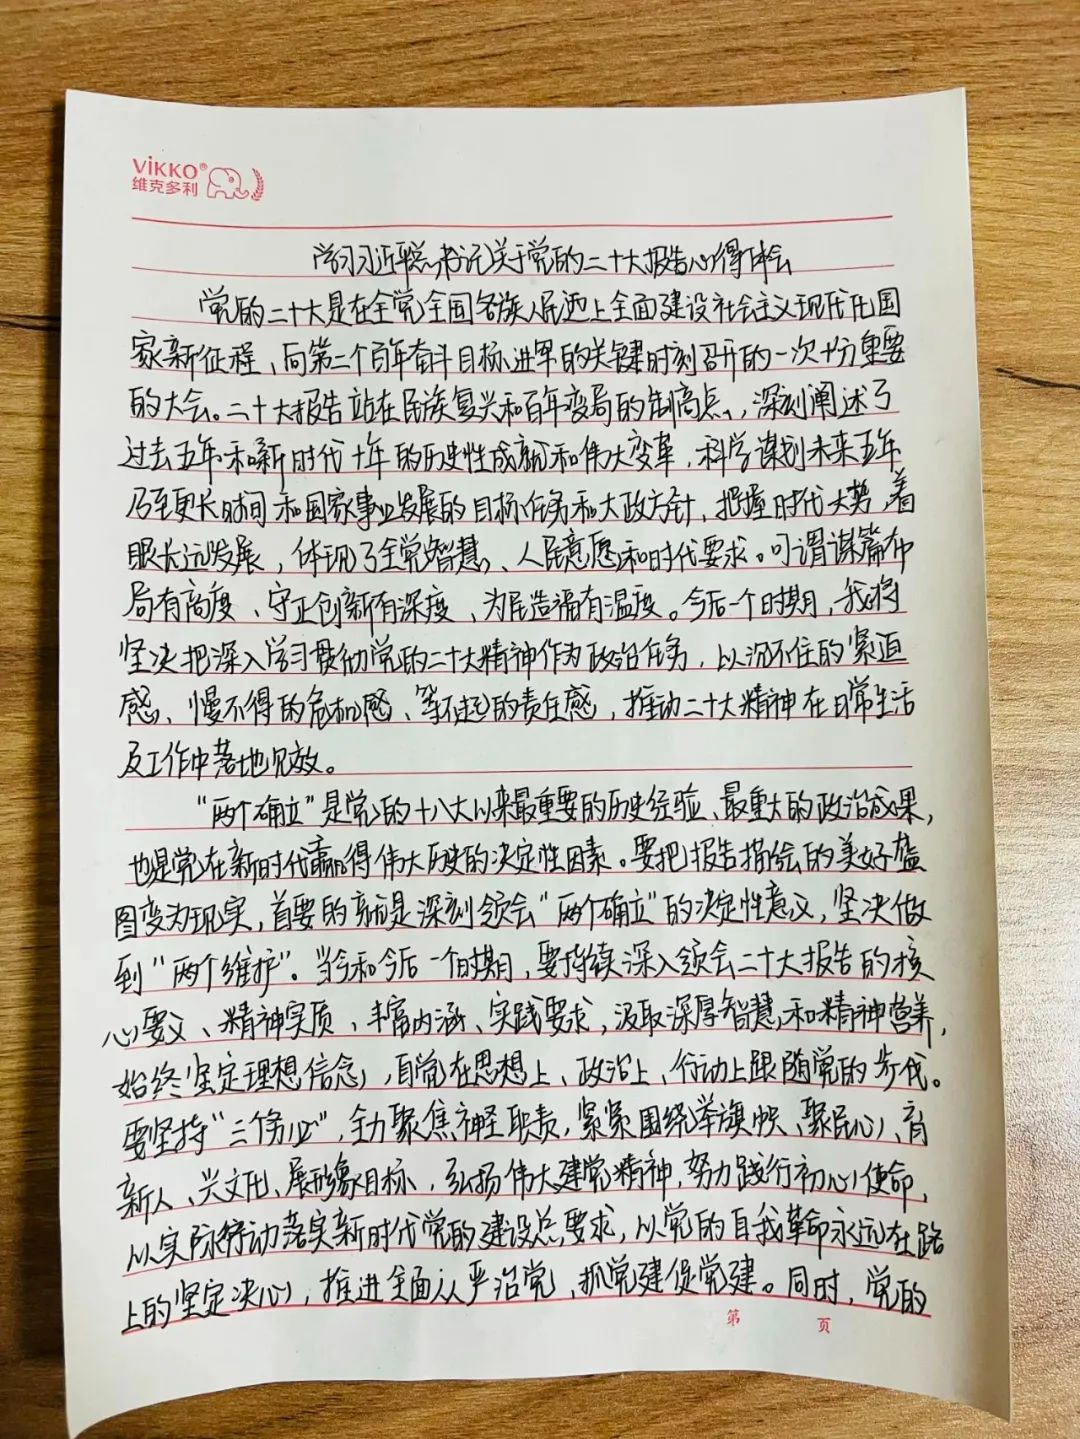 VIKKO®
维克多利
学习习近平总书记关于党的二十大报告心得体会
党的二十大是在全党全国各族人民迈上全面建设社会主义现代化国
家新征程、向第二个百年奋斗目标进军的关键时刻召开的一次十分重要
的大会。二十大报告站在民族复兴和百年变局的制高点，深刻阐述了
过去五年和新时代十年的历史性成就和伟大变革，科学谋划未来五年
乃至更长时间和国家事业发展的目标任务和大政方针，把握时代大势，着
眼长远发展，体现了全党智慧、人民意愿和时代要求。可谓谋篇布
局有高度、守正创新有深度、为民造福有温度。今后一个时期，我将
坚决把深入学习贯彻党的二十大精神作为政治任务，以沉不住的紧迫
感、慢不得的危机感、等不起的责任感，推动二十大精神在日常生活
及工作中落地见效。
“两个确立”是党的十八大以来最重要的历史经验、最重大的政治成果，
也是党在新时代赢得伟大历史的决定性因素。要把报告描绘的美好蓝
图变为现实，首要的就是深刻领会“两个确立”的决定性意义，坚决做
到“两个维护”。当今和今后一个时期，要持续深入领会二十大报告的核
心要义、精神实质、丰富内涵、实践要求，汲取深厚智慧和精神营养，
始终坚定理想信念，自觉在思想上、政治上、行动上跟随党的步伐。
要坚持“三个务必”，全力聚焦神圣职责，紧紧围绕举旗帜、聚民心、育
新人、兴文化、展形象目标，弘扬伟大建党精神，努力践行初心使命，
以实际行动落实新时代党的建设总要求，以党的自我革命永远在路
上的坚定决心，推进全面从严治党、抓党建促党建。同时，党的
第 页